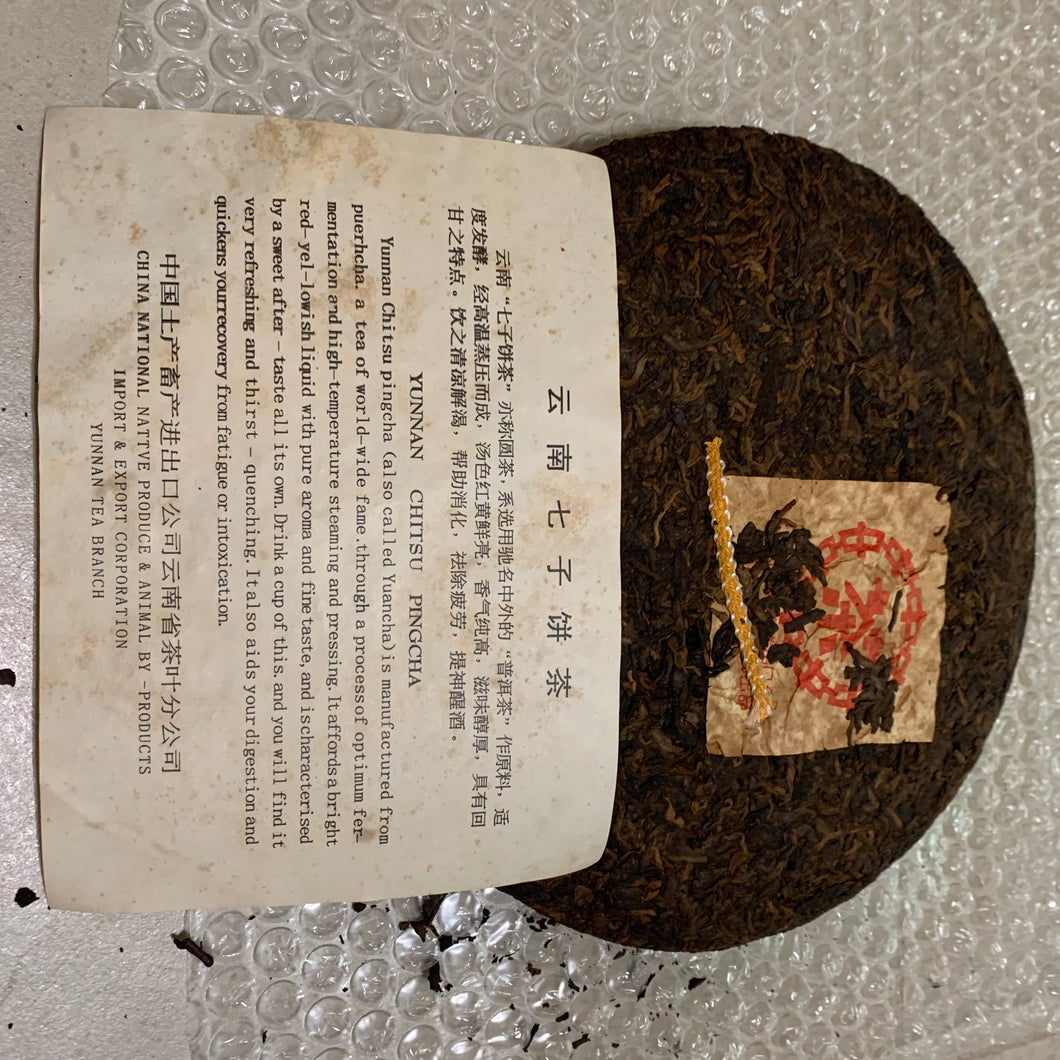 云南七子饼茶
云南“七子饼茶”亦称圆茶，系选用驰名中外的“普洱茶”作原料，适
度发酵，经高温蒸压而成，汤色红黄鲜亮，香气纯高，滋味醇厚，具有回
甘之特点。饮之清凉解渴，帮助消化，祛除疲劳，提神醒酒。
YUNNAN CHITSU PINGCHA
Yunnan Chitsu pingcha (also called Yuancha) is manufactured from
puerhcha. a tea of world-wide fame. through a process of optimum fer-
mentation and high-temperature steaming and pressing. It affords a bright
red-yel-lowish liquid with pure aroma and fine taste, and is characterised
by a sweet after-taste all its own. Drink a cup of this. and you will find it
very refreshing and thirst-quenching. It also aids your digestion and
quickens your recovery from fatigue or intoxication.
中国土产畜产进出口公司云南省茶叶分公司
CHINA NATIONAL NATTVE PRODUCE & ANIMAL BY-PRODUCTS
IMPORT & EXPORT CORPORATION
YUNNAN TEA BRANCH
中中中中中
茶